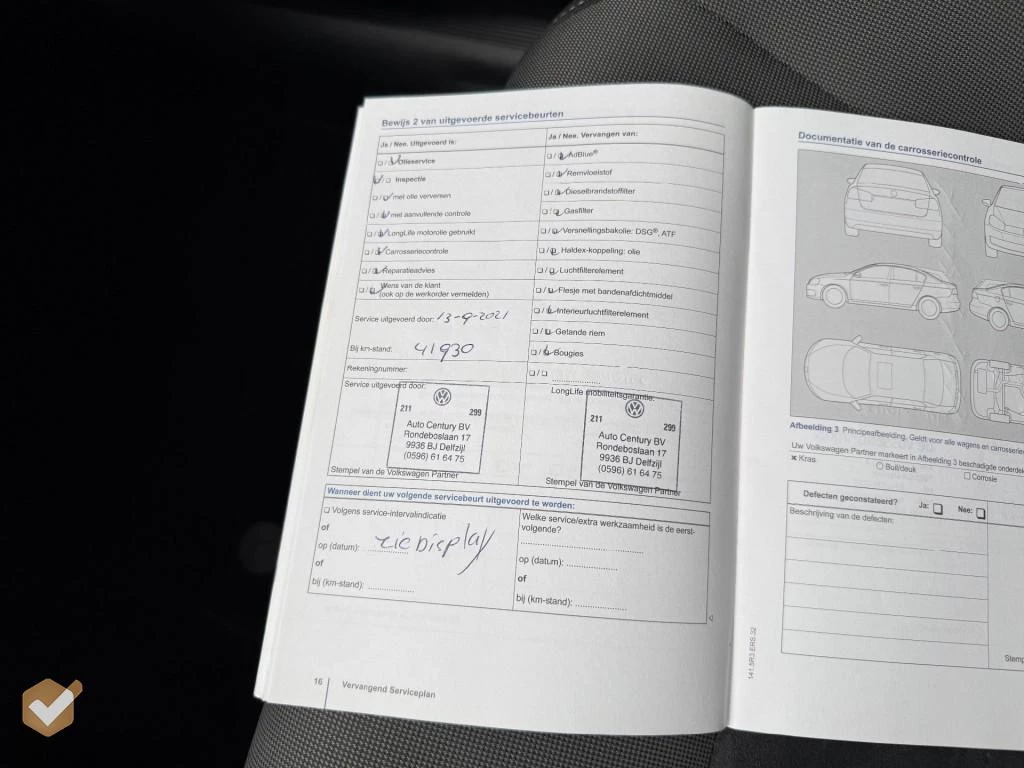 Bewijs 2 van uitgevoerde servicebeurten
Ja / Nee. Uitgevoerd is:
Olieservice
Inspectie
met olie verversen
met aanvullende controle
LongLife motorolie gebruikt
Carrosseriecontrole
Reparatieadvies
Wens van de klant
(ook op de werkorder vermelden)
Service uitgevoerd door: 13-9-2021
Bij km-stand: 41930
Rekeningnummer:
Service uitgevoerd door:
211 299
Auto Century BV
Rondeboslaan 17
9936 BJ Delfzijl
(0596) 61 64 75
Stempel van de Volkswagen Partner
Ja / Nee. Vervangen van:
AdBlue®
Remvloeistof
Dieselbrandstoffilter
Gasfilter
Versnellingsbakolie: DSG®, ATF
Haldex-koppeling: olie
Luchtfilterelement
Flesje met bandenafdichtmiddel
Interieurluchtfilterelement
Getande riem
Bougies
LongLife mobiliteitsgarantie:
211 299
Auto Century BV
Rondeboslaan 17
9936 BJ Delfzijl
(0596) 61 64 75
Stempel van de Volkswagen Partner
Wanneer dient uw volgende servicebeurt uitgevoerd te worden:
Volgens service-intervalindicatie
of
op (datum): zie Display
of
bij (km-stand):
Welke service/extra werkzaamheid is de eerst-
volgende?
op (datum):
of
bij (km-stand):
16 Vervangend Serviceplan
Documentatie van de carrosseriecontrole
Afbeelding 3 Principeafbeelding. Geldt voor alle wagens en
Uw Volkswagen Partner markeert in Afbeelding 3 beschadigde
x Kras
Buil/deuk
Corrosie
Defecten geconstateerd? Ja: Nee:
Beschrijving van de defecten:
141.5R3.ERS.32